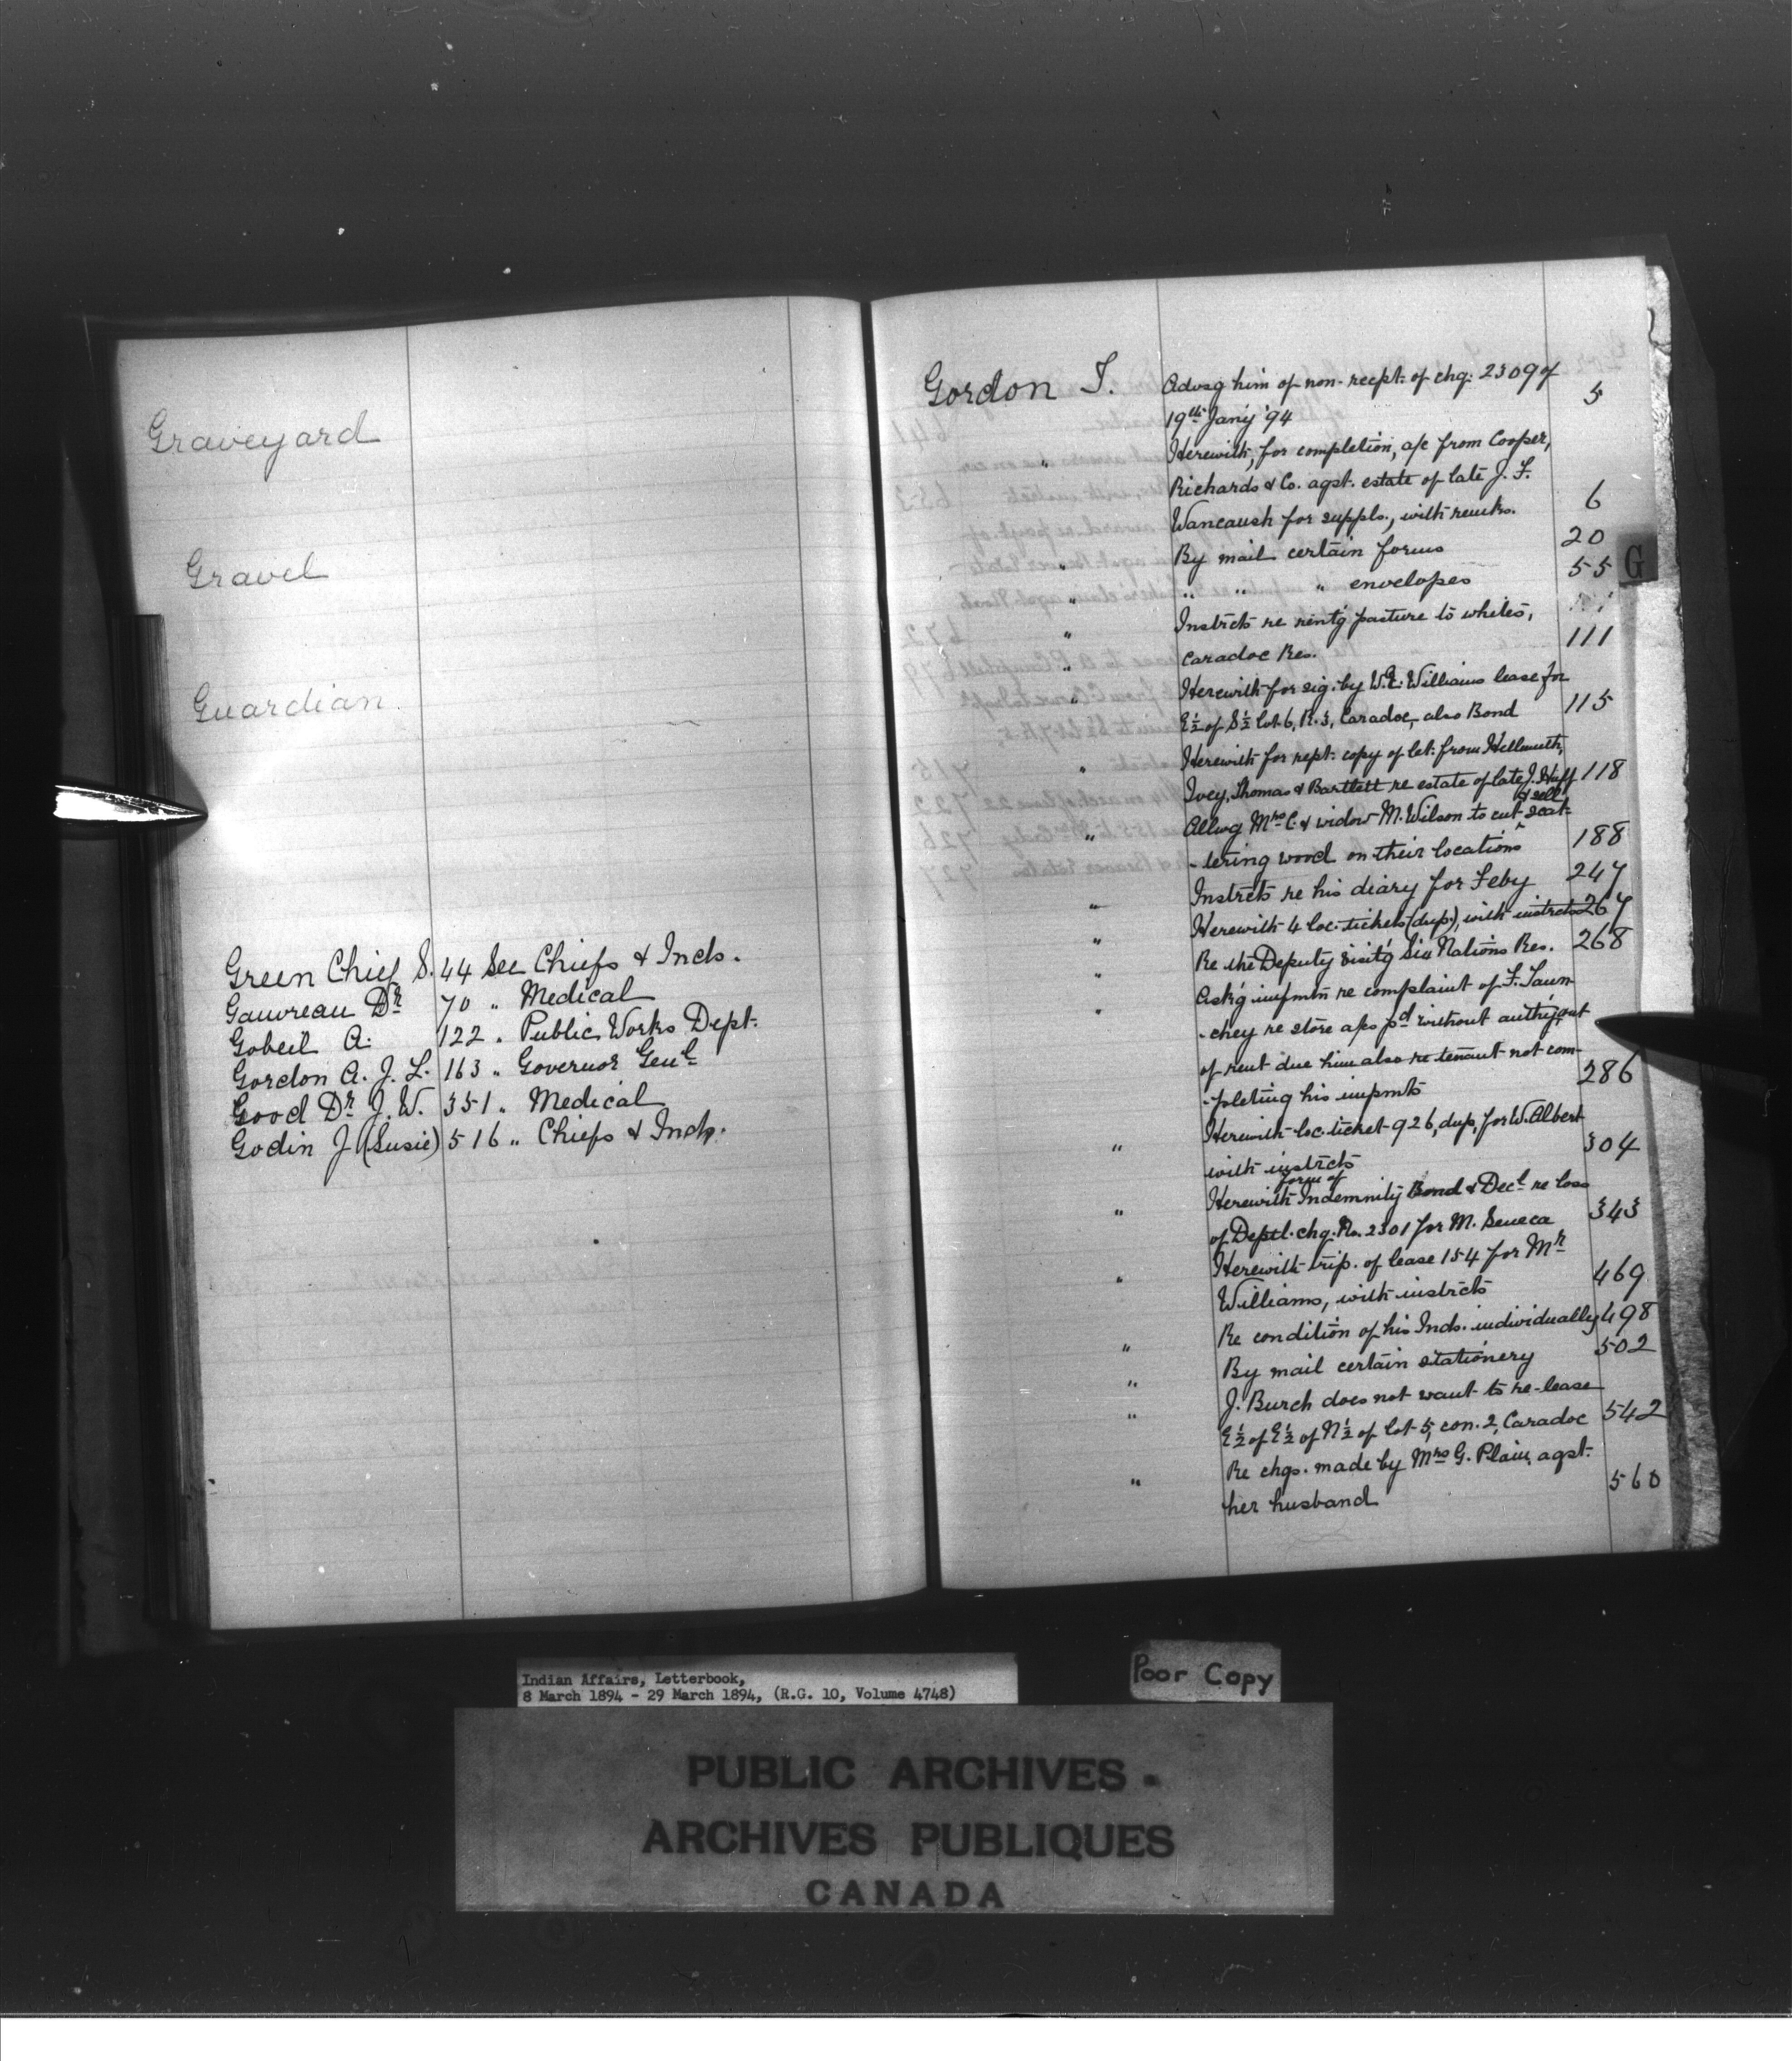 Graveyard
Gravel
Guardian
Green Chief S. 44 See Chiefs & Inds.
Gauvreau Dr 70 " Medical
Gobeil A. 122 " Public Works Dept.
Gordon A. J. L. 163 " Governor Genl
Good Dr J. W. 351 " Medical
Godin J (Susie) 516 " Chiefs & Inds.
Gordon J. Advsg him of non-recpt. of chq. 2309 of
19th Jany '94 5
" Herewith, for completion, a/c from Cooper,
Richards & Co. agst. estate of late J. F.
Wancaush for suppls., with remks. 6
" By mail certain forms 20
" " " " envelopes 55
" Instrcts re rent'g pasture to whites,
Caradoc Res. 111
" Herewith for sig. by W. E. Williams lease for
E½ of S½ lot 6, R. 3, Caradoc, also Bond 115
" Herewith for rept. copy of let. from Hellmuth,
Ivey, Thomas & Bartlett re estate of late J. Huff 118
" Allwg Mrs C. & widow M. Wilson to cut & sell scat-
-tering wood on their locations 188
" Instrcts re his diary for Feby 247
" Herewith 4 loc. tickets (dup.), with instrcts 267
" Re the Deputy visit'g Six Nations Res. 268
" Ask'g infmtn re complaint of F. Taun-
-chey re store a/cs pd without auth'y, out
of rent due him also re tenant not com-
-pleting his impmts 286
" Herewith loc. ticket 926, dup, for W. Albert
with instrcts 304
" Herewith form of Indemnity Bond & Decl re loss
of Deptl. chq. No. 2301 for M. Seneca 343
" Herewith trip. of lease 154 for Mr
Williams, with instrcts 469
" Re condition of his Inds. individually 498
" By mail certain stationery 502
" J. Burch does not want to re-lease
E½ of E½ of N½ of lot 5, con. 2, Caradoc 542
" Re chgs. made by Mrs G. Plain, agst.
her husband 560
G
Indian Affairs, Letterbook,
8 March 1894 - 29 March 1894, (R.G. 10, Volume 4748)
Poor Copy
PUBLIC ARCHIVES -
ARCHIVES PUBLIQUES
CANADA